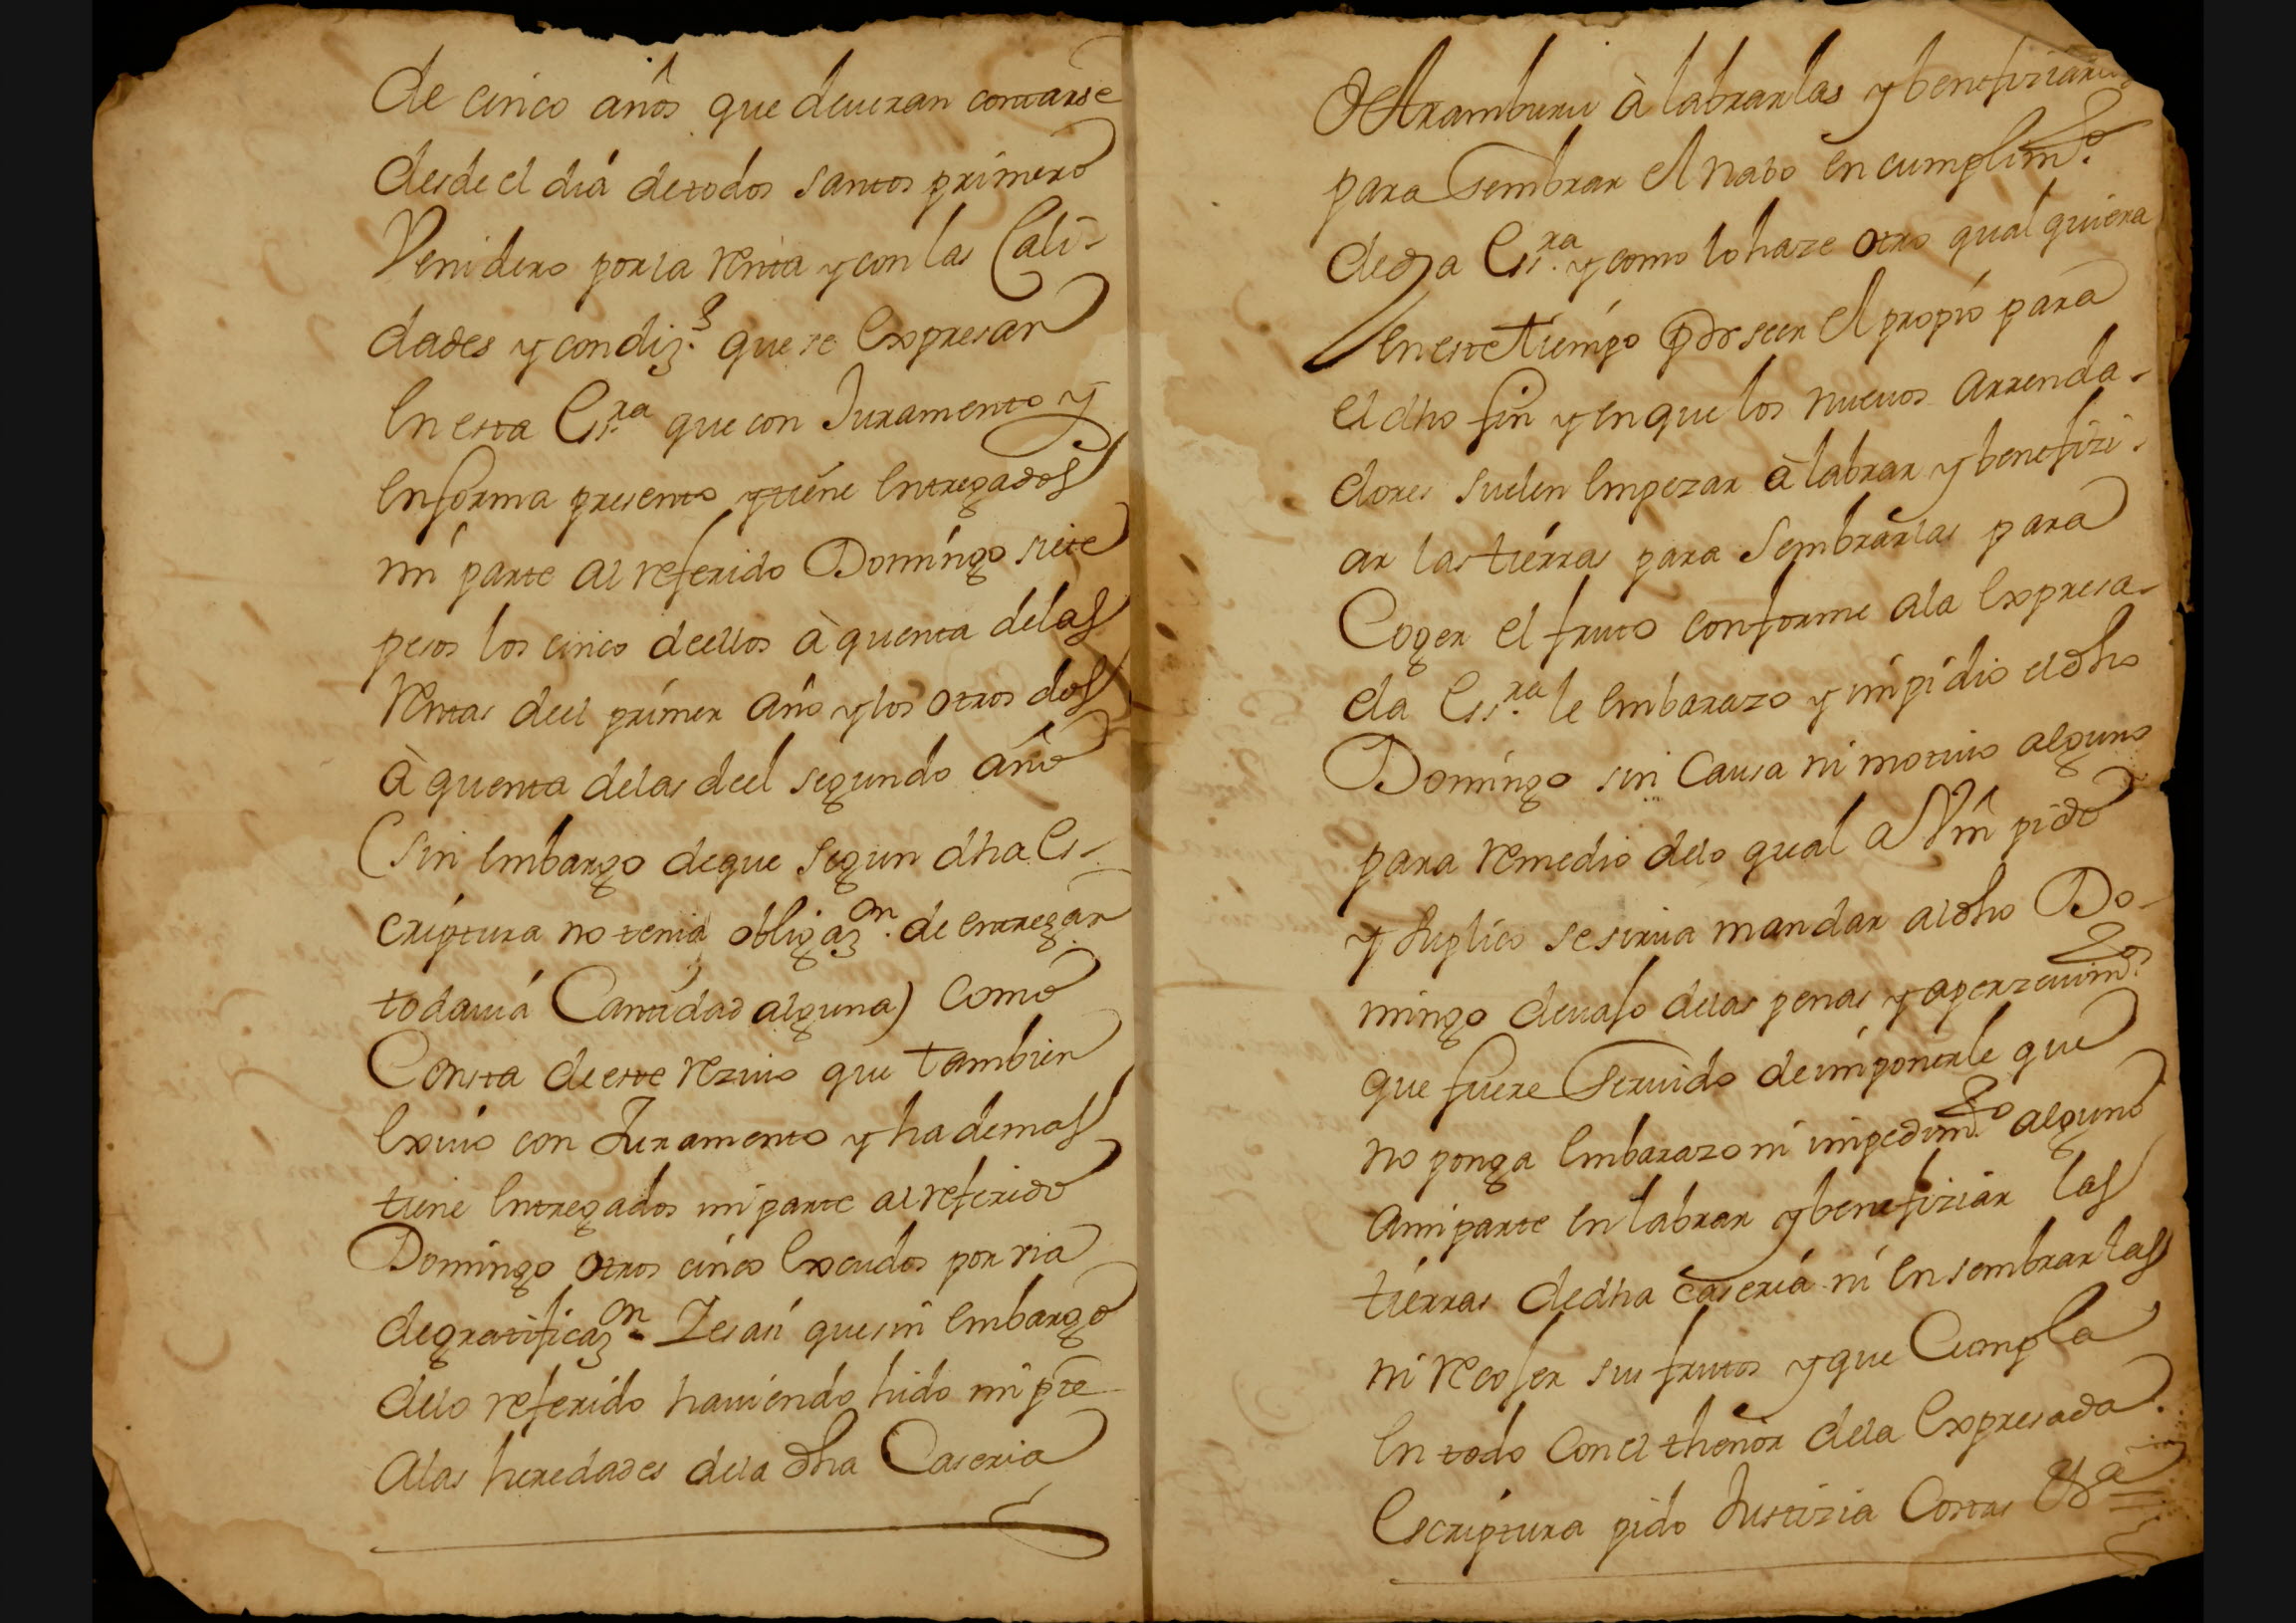 de cinco años que deueran contarse
desde el diá de todos santos primero
Venidero por la renta y con las Cali-
dades y condiz.s que se expresan
en esta Es.ra que con Juramento y
en forma presento y tiene entregados
mi parte al referido Domingo siete
pesos los cinco deellos à quenta delas
rentas deel primer año y los otros dos
à quenta delas deel segundo año
(sin embargo de que segun dha es-
criptura no tenia obligaz.on de entregar
todauiá Cantidad alguna) como
Consta de este reziuo que tambien
exiuo con Juramento y hademas
tiene entregados mi parte al referido
Domingo otros cinco escudos por via
de gratificaz.on Iesasi que sin embargo
delo referido hauiendo hido mi pte
alas heredades dela dha Caseria
de Aramburu à labrarlas y benefiziarlas
para sembrar el nabo en cumplim.to
de dha Es.ra y como lo haze otro qual quiera
en este tiempo por seer el propio para
el dho fin y en que los nueuos arrenda-
dores suelen empezar à labrar y benefizi-
ar las tierras para sembrarlas para
Coger el fruto conforme ala expresa-
da Es.ra le embarazo y impidio el dho
Domingo sin Causa ni motiuo alguno
para remedio delo qual a Vm pido
y suplico se sirua mandar al dho Do-
mingo deuajo delas penas y aperzeuim.tos
que fuere seruido de imponerle que
no ponga embarazo ni impedim.to alguno
ami parte en labrar y benefiziar las
tierras de dha caseriá ni en sembrarlas
ni recoser sus frutos y que Cumpla
en todo con el thenor dela expresada
Escriptura pido Justizia Costas &a